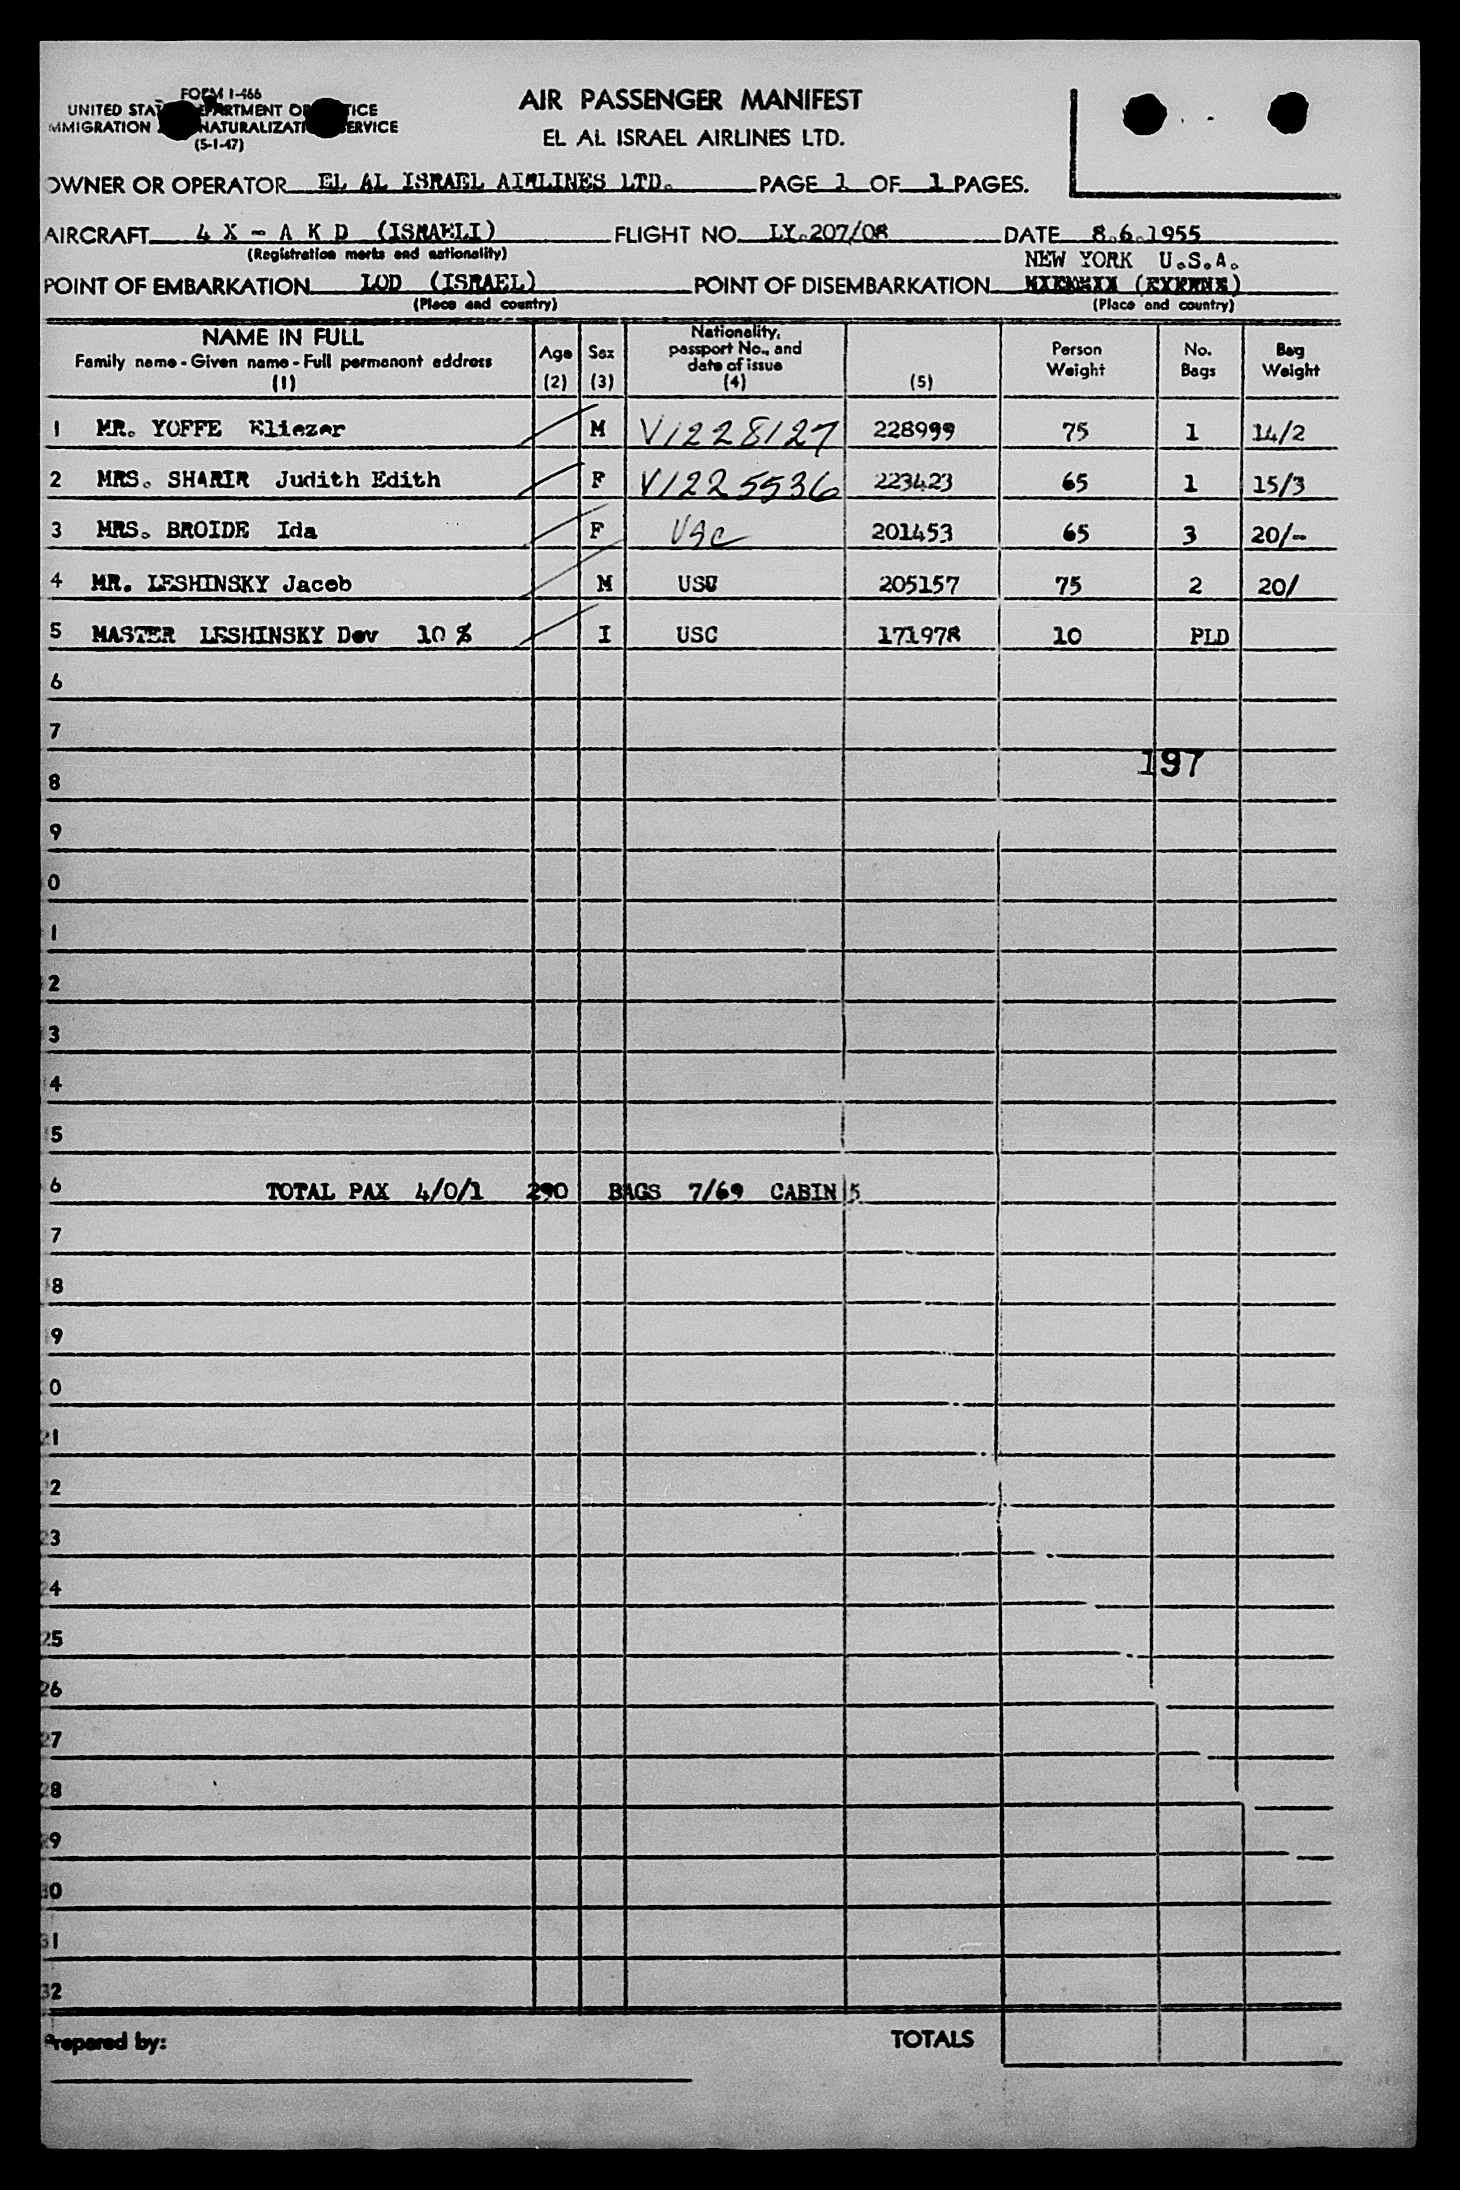 FORM I-466
UNITED STATES DEPARTMENT OF JUSTICE
IMMIGRATION AND NATURALIZATION SERVICE
(5-1-47)
AIR PASSENGER MANIFEST
EL AL ISRAEL AIRLINES LTD.
OWNER OR OPERATOR EL AL ISRAEL AIRLINES LTD. PAGE 1 OF 1 PAGES.
AIRCRAFT 4 X - A K D (ISRAELI) FLIGHT NO. LY.207/08 DATE 8.6.1955
(Registration marks and nationality)
NEW YORK U.S.A.
POINT OF EMBARKATION LOD (ISRAEL) POINT OF DISEMBARKATION
(Place and country) (Place and country)
NAME IN FULL
Family name - Given name - Full permanent address
(1)
Age
(2)
Sex
(3)
Nationality,
passport No., and
date of issue
(4)
(5)
Person
Weight
No.
Bags
Bag
Weight
1 MR. YOFFE Eliezer M V1228127 228999 75 1 14/2
2 MRS. SHARIR Judith Edith F V1225536 223423 65 1 15/3
3 MRS. BROIDE Ida F USC 201453 65 3 20/-
4 MR. LESHINSKY Jacob M USC 205157 75 2 20/
5 MASTER LESHINSKY Dov 10 % I USC 171978 10 PLD
6
7
197
8
9
0
1
2
3
4
5
6 TOTAL PAX 4/0/1 290 BAGS 7/69 CABIN 5
7
8
9
0
21
2
23
24
25
26
27
28
29
30
31
32
Prepared by:
TOTALS